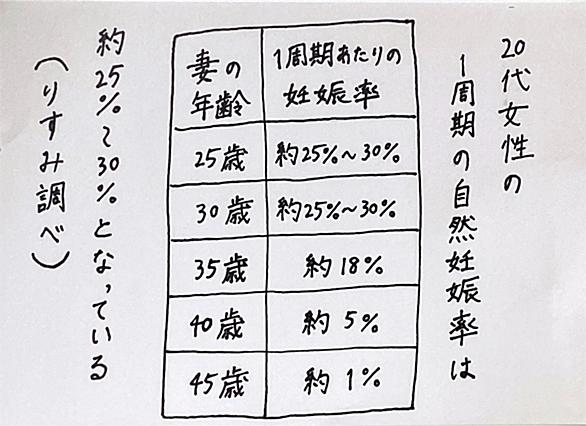 20代女性の
1周期の自然妊娠率は
妻の年齢 1周期あたりの妊娠率
25歳 約25%~30%
30歳 約25%~30%
35歳 約18%
40歳 約5%
45歳 約1%
約25%~30%となっている
(りすみ調べ)